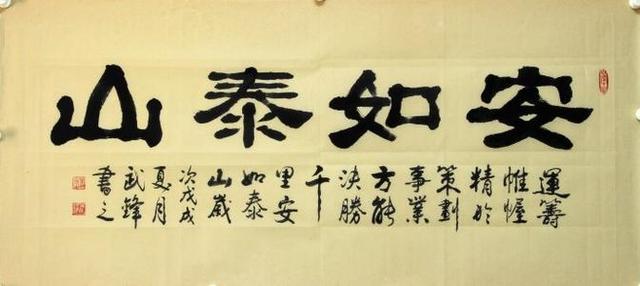 安如泰山
運籌
帷幄
精於
策劃
事業
方能
決勝
千
里安
如泰
山歲
次戊戌
夏月
武鋒
書之